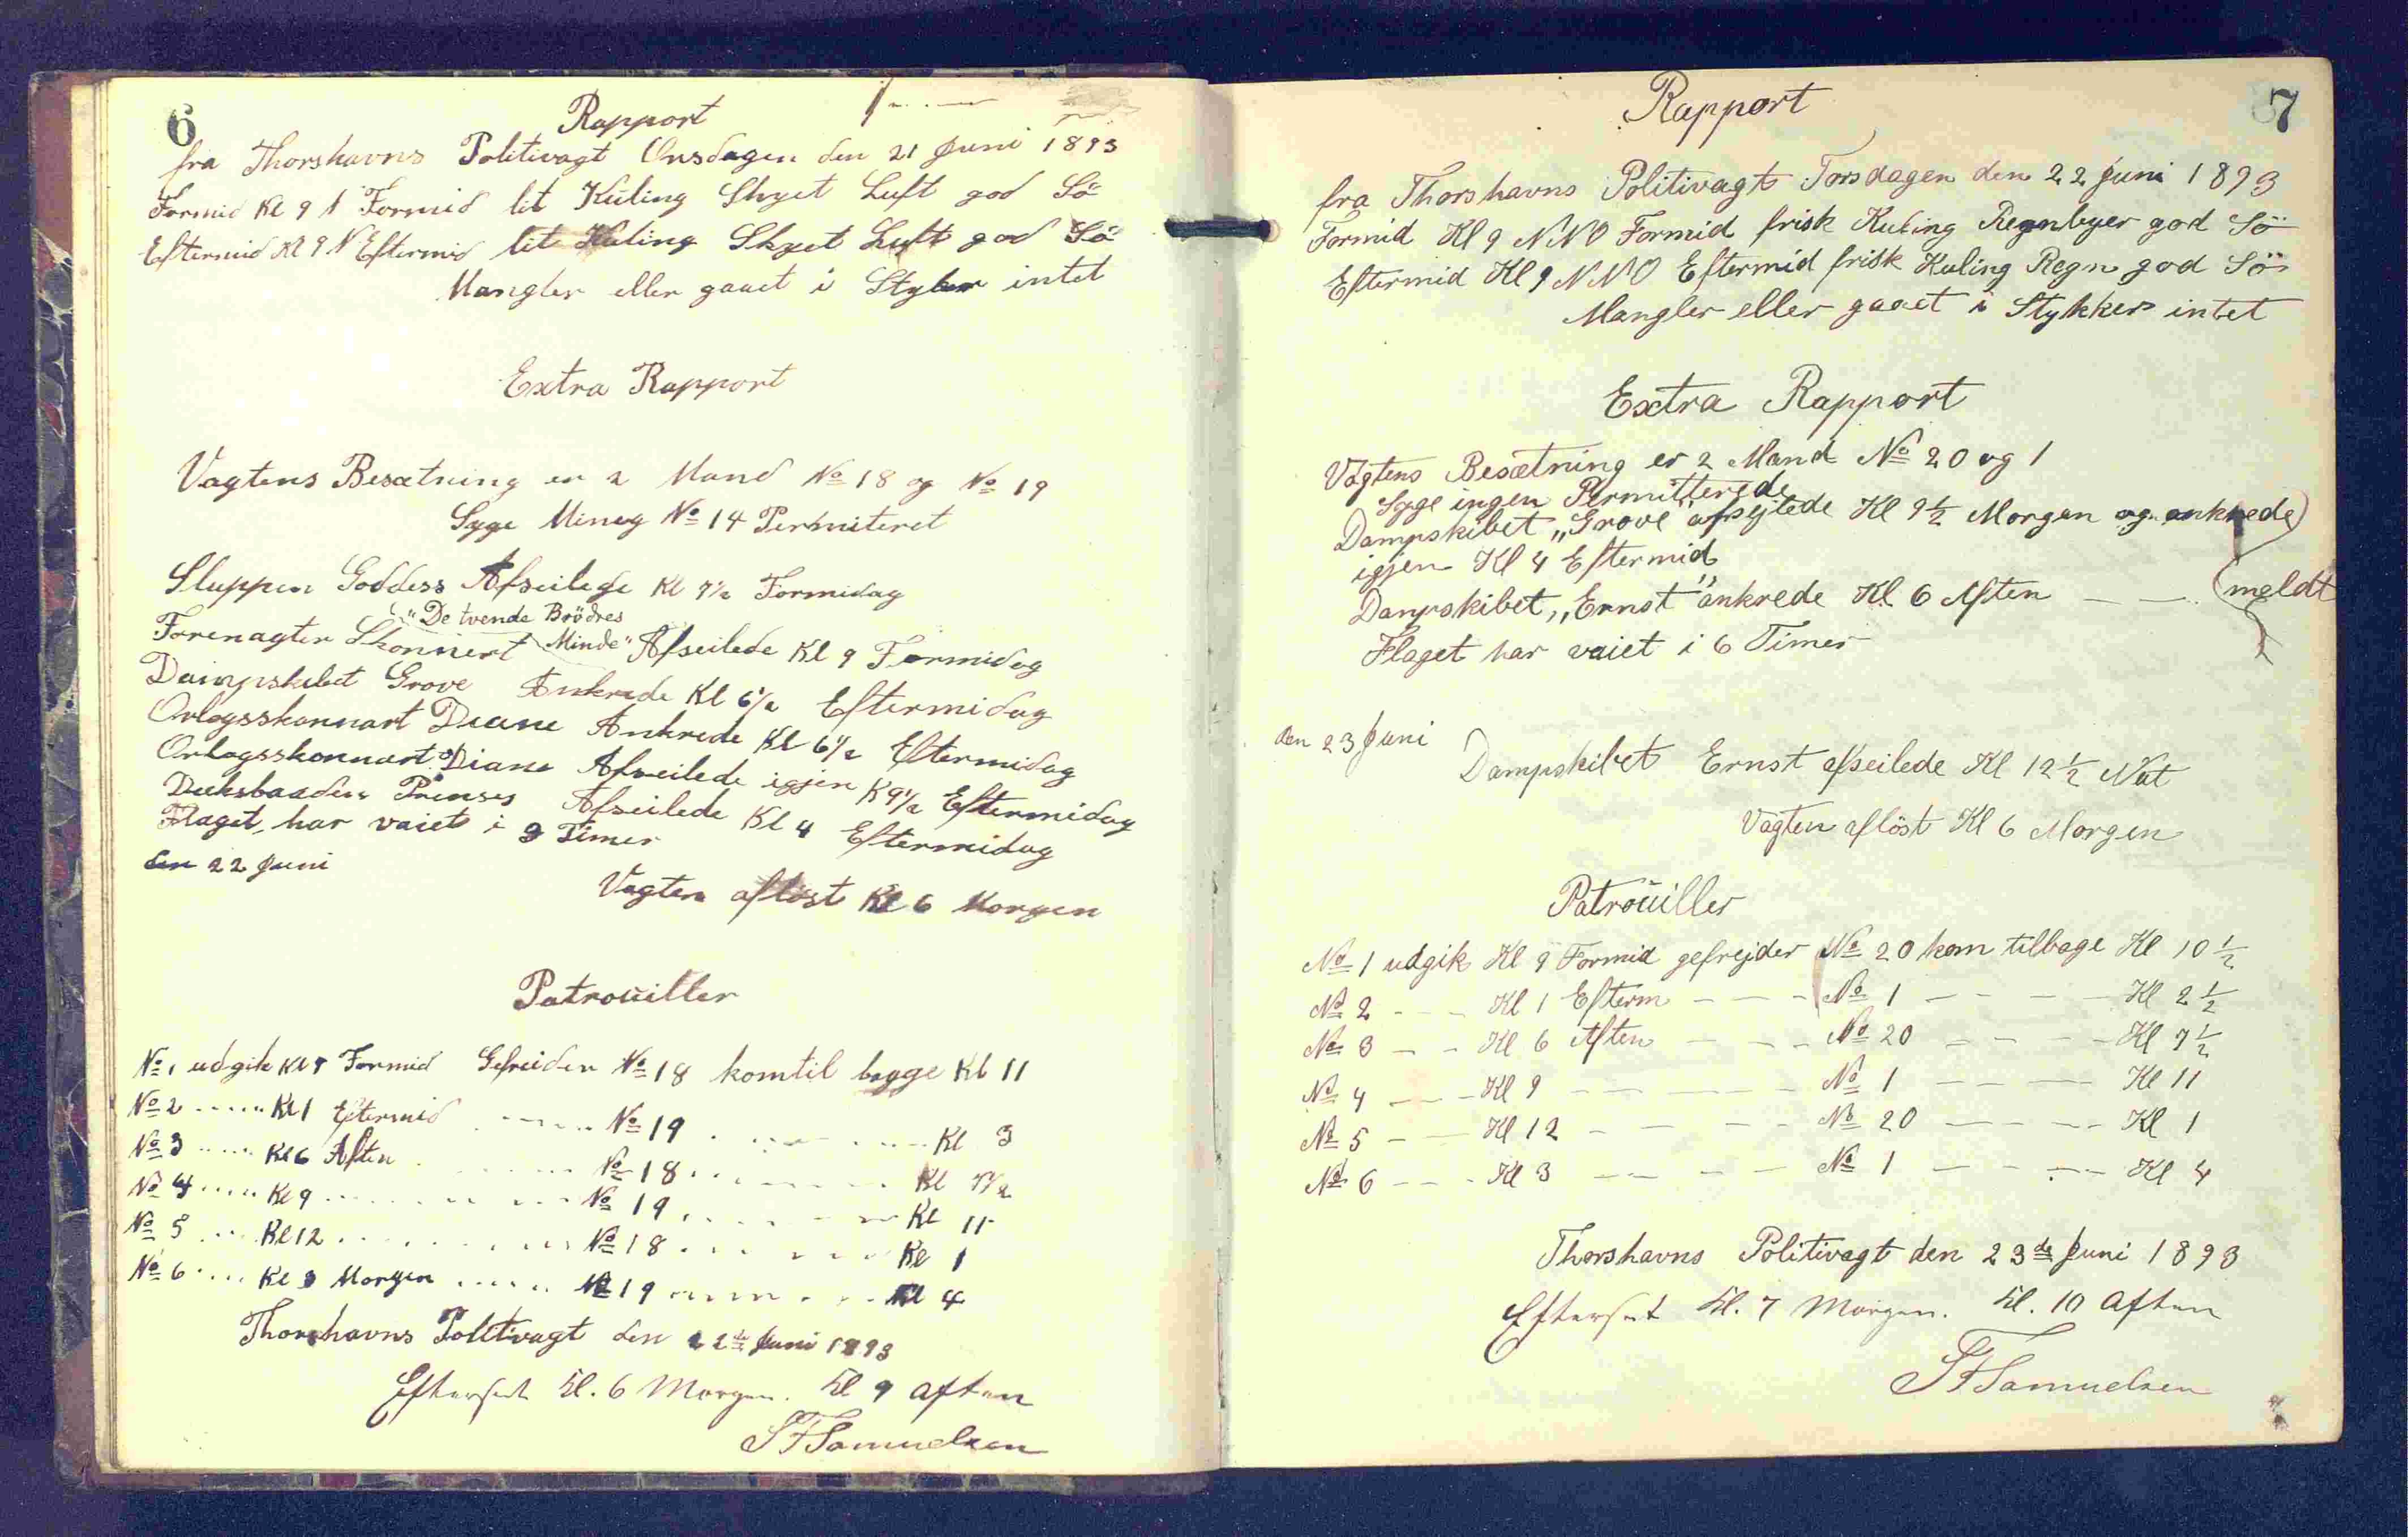 6
Rapport
fra Thorshavns Politivagt Onsdagen den 21 Juni 1893
Formid Kl 9 N Formid lit Kuling Skyet Luft god Sö
Eftermid Kl 9 N Eftermid lit Kuling Skyet Luft god Sö
Mangler eller gaaet i Styker intet
Extra Rapport
Vagtens Besætning er 2 Mand No 18 og No 19
Syge No 14 Permiteret
Sluppen Goddess Afseilede Kl 7½ Formidag
"De tvende Brödres
Forenagter Skonnert Minde" Afseilede Kl 9 Formidag
Dampskibet Grove Ankrede Kl 6½ Eftermidag
Orlogsskonnart Diane Ankrede Kl 6½ Eftermidag
Orlogsskonnart Diana Afseilede igjen K 9½ Eftermidag
Deksbaaden Prinses Afseilede Kl 4 Eftermidag
Flaget har vaiet i 9 Timer
den 22 Juni
Vagten aflöst Kl 6 Morgen
Patrouiller
No 1 udgik Kl 9 Formid Gefreider No 18 kom til bagge Kl 11
No 2 ...... Kl 1 Eftermid ...... No 19 ...... Kl 3
No 3 ...... Kl 6 Aften ...... No 18 ...... Kl 7½
No 4 ...... Kl 9 ...... No 19 ...... Kl 11
No 5 ...... Kl 12 ...... No 18 ...... Kl 1
No 6 ...... Kl 3 Morgen ...... No 19 ...... Kl 4
Thorshavns Politivagt den 22de Juni 1893
Efterset Kl. 6 Morgen. Kl 9 Aften
SFSamuelsen
7
Rapport
fra Thorshavns Politivagt Torsdagen den 22 Juni 1893
Formid Kl 9 NNO Formid frisk Kuling Regnbyer god Sö
Eftermid Kl 9 NNO Eftermid frisk Kuling Regn god Sö
Mangler eller gaaet i Stykker intet
Extra Rapport
Vagtens Besætning er 2 Mand No 20 og 1
Syge ingen Permitterede
Dampskibet „Grove" afsejlede Kl 9½ Morgen og ankrede
igjen Kl 4 Eftermid
Dampskibet „Ernst" ankrede Kl 6 Aften — — (meldt
Flaget har vaiet i 6 Timer
den 23 Juni
Dampskibet Ernst afseilede Kl 12½ Nat
Vagten aflöst Kl 6 Morgen
Patrouiller
No 1 udgik Kl 9 Formid gefrejder No 20 kom tilbage Kl 10½
No 2 - - - Kl 1 Efterm - - - No 1 - - - Kl 2½
No 3 - - - Kl 6 Aften - - - No 20 - - - Kl 7½
No 4 - - - Kl 9 - - - No 1 - - - Kl 11
No 5 - - - Kl 12 - - - No 20 - - - Kl 1
No 6 - - - Kl 3 - - - No 1 - - - Kl 4
Thorshavns Politivagt den 23de Juni 1893
Efterset Kl. 7 Morgen. Kl. 10 Aften
SFSamuelsen